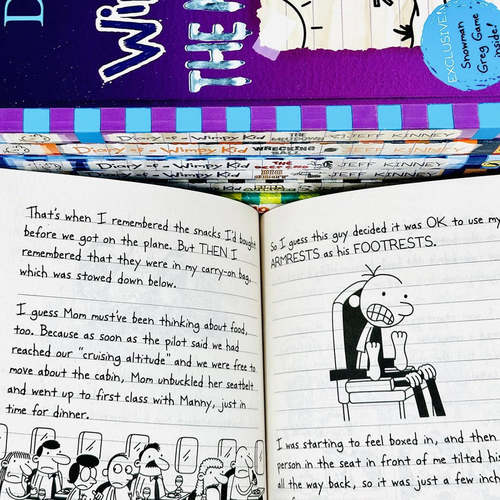 Wi
THE M
EXCLUSIVE!
Snowman
Greg Game
inside!
Diary of a Wimpy Kid THE MELTDOWN JEFF KINNEY
Diary of a Wimpy Kid WRECKING BALL JEFF KINNEY
Diary of a Wimpy Kid THE JEFF KINNEY
Diary of a Wimpy Kid JEFF KINNEY
That's when I remembered the snacks I'd bought
before we got on the plane. But THEN I
remembered that they were in my carry-on bag,
which was stowed down below.
I guess Mom must've been thinking about food,
too. Because as soon as the pilot said we had
reached our "cruising altitude" and we were free to
move about the cabin, Mom unbuckled her seatbelt
and went up to first class with Manny, just in
time for dinner.
So I guess this guy decided it was OK to use my
ARMRESTS as his FOOTRESTS.
I was starting to feel boxed in, and then
person in the seat in front of me tilted his
all the way back, so it was just a few inc